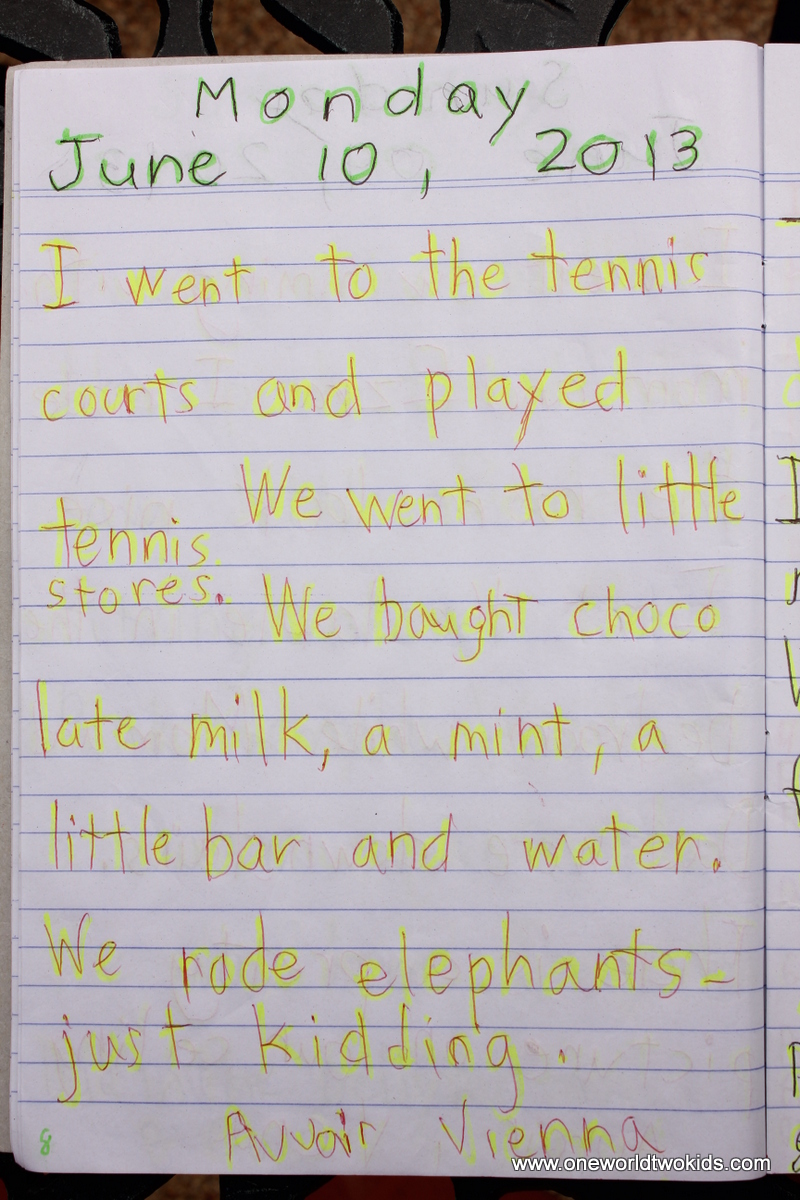 Monday
June 10, 2013
I went to the tennis
courts and played
tennis. We went to little
stores. We bought choco
late milk, a mint, a
little bar and water.
We rode elephants-
just kidding.
Vienna
8
www.oneworldtwokids.com